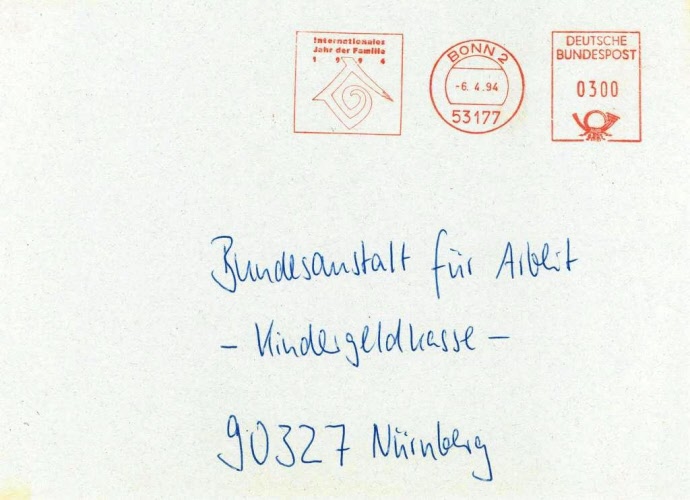 Internationales
Jahr der Familie
1994
BONN 2
-6. 4. 94
53177
DEUTSCHE
BUNDESPOST
0300
Bundesanstalt für Arbeit
- Kindergeldkasse -
90327 Nürnberg